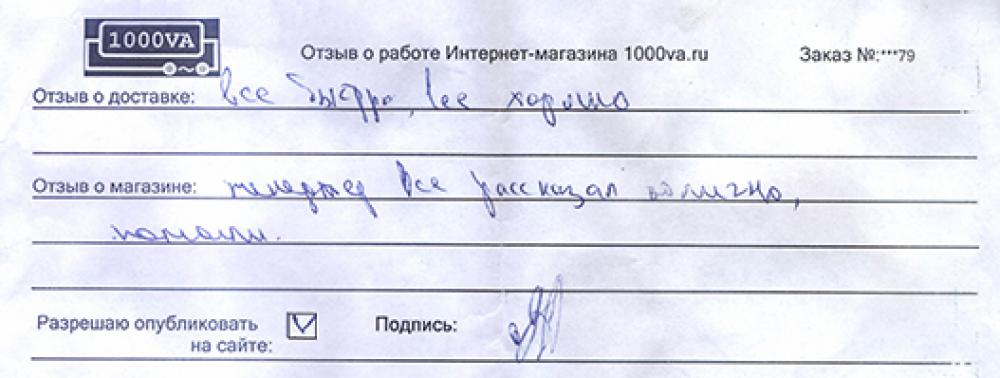 1000VA
Отзыв о работе Интернет-магазина 1000va.ru
Заказ №:***79
Отзыв о доставке: все быстро, все хорошо
Отзыв о магазине: менеджер все рассказал отлично,
помогли.
Разрешаю опубликовать
на сайте:
Подпись: